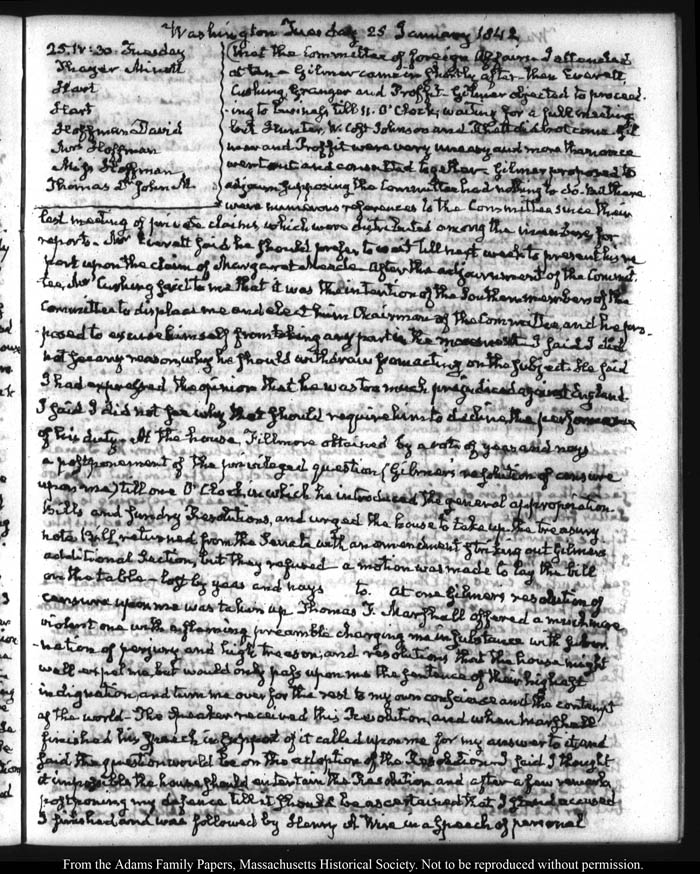 Washington Tuesday 25 January 1842
25. IV:30. Tuesday
Thayer Minott
Hart
Hart
Hoffman David
Mrs Hoffman
Miss Hoffman
Thomas Dr John M.
(that the Committee of foreign Affairs I attended
at ten – Gilmer came in shortly after then Everett,
Cushing, Granger and Proffit – Gilmer objected to proceed-
-ing to business till 11. O'Clock, waiting for a full meeting
but Hunter, W. Cost Johnson and Rhett did not come. Gil
mer and Proffit were very uneasy and more than once
went out and consulted together – Gilmer proposed to
adjourn supposing the Committee had nothing to do. But there
were numerous references to the Committee since their
last meeting of private claims which were distributed among the members, for
reports. Mr Everett said he should prefer to wait till next week to present his re
port upon the claim of Margaret Meade. After the adjournment of the Commit-
tee, Mr Cushing said to me that it was the intention of the Southern members of the
Committee to displace me and elect him Chairman of the Committee, and he pro-
posed to excuse himself from taking any part in the movement. I said I did
not see any reason why he should withdraw from acting on the subject. He said
I had expressed the opinion that he was too much prejudiced against England.
I said I did not see why that should require him to decline the performance
of his duty. At the house, Fillmore obtained by a vote of yeas and nays
a postponement of the privileged question (Gilmer's resolution of censure
upon me) till one O'Clock, in which he introduced the general appropriation
Bills and sundry Resolutions, and urged the house to take up the treasury
note Bill returned from the Senate with an amendment striking out Gilmer's
additional Section, but they refused – a motion was made to lay the bill
on the table – lost by yeas and nays to. At one Gilmer's resolution of
censure upon me was taken up Thomas F. Marshall offered a much more
violent one with a flaming preamble charging me in substance with subor-
-nation of perjury and high treason, and resolutions that the house might
well expel me, but would only pass upon me the sentence of their highest
indignation, and turn me over for the rest to my own conscience and the contempt
of the world – The Speaker received this Resolution, and when Marshall
finished his speech in support of it called upon me for my answer to it, and
said the question would be on the adoption of the Resolution. I said I thought
it impossible the house should entertain the Resolution and after a few remarks
postponing my defence till it should be ascertained that I stand accused
I finished, and was followed by Henry A Wise in a speech of personal
From the Adams Family Papers, Massachusetts Historical Society. Not to be reproduced without permission.